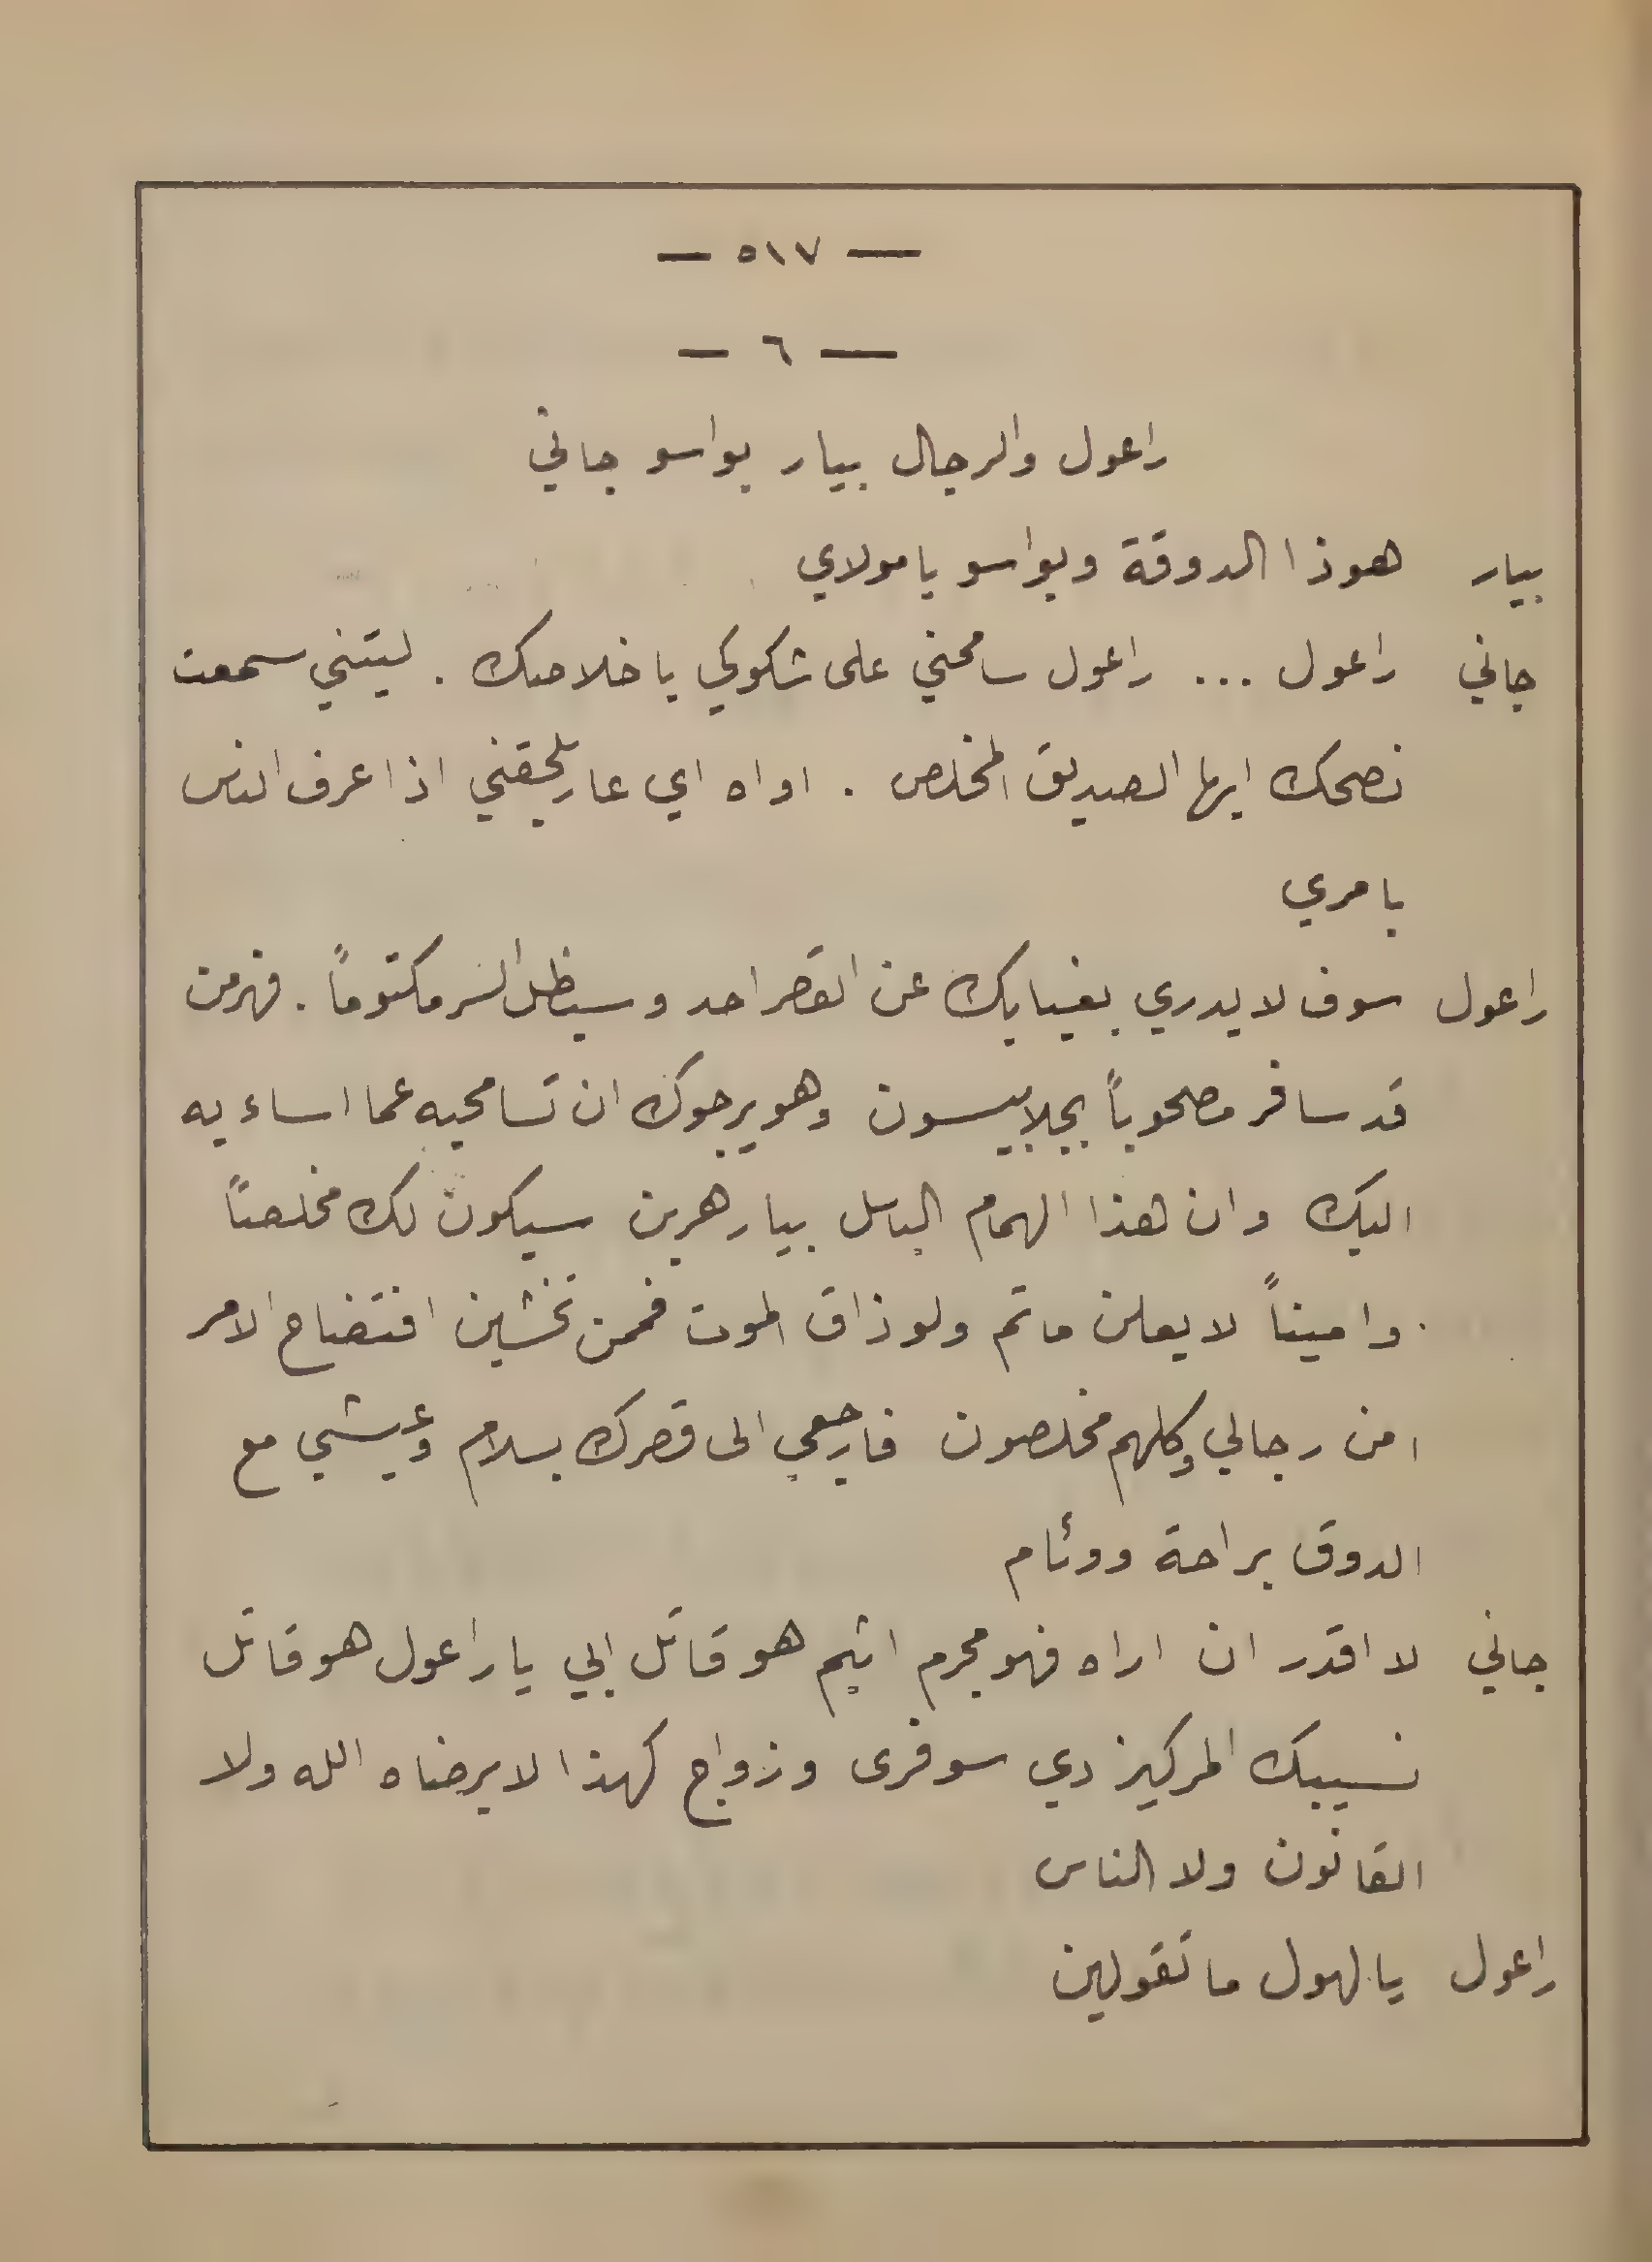 — ٥١٧ —
— ٦ —
راعول والرجال بيار بواسو جاني
بيار هوذا الدوقة وبواسو يا مولاي
جاني راعول ... راعول سامحني على شكوكي باخلاصك . ليتني سمعت
نصحك ايها الصديق المخلص . اواه اي عار يلحقني اذا عرف الناس
بامري
راعول سوف لا يدري بغيابك عن القصر احد وسيظل السر مكتوماً . فهرمن
قد سافر مصحوباً بجلابيسون وهو يرجوك ان تسامحيه عما اساء به
اليك وان هذا الهمام الباسل بيار هرين سيكون لك مخلصاً
واميناً لا يعلن ما تم ولو ذاق الموت فممن تخشين افتضاح الامر
امن رجالي وكلهم مخلصون فارجعي الى قصرك بسلام وعيشي مع
الدوق براحة ووئام
جاني لا اقدر ان اراه فهو مجرم اثيم هو قاتل ابي يا راعول هو قاتل
نسيبك المركيز دي سوفرى وزواج كهذا لا يرضاه الله ولا
القانون ولا الناس
راعول يا لهول ما تقولين